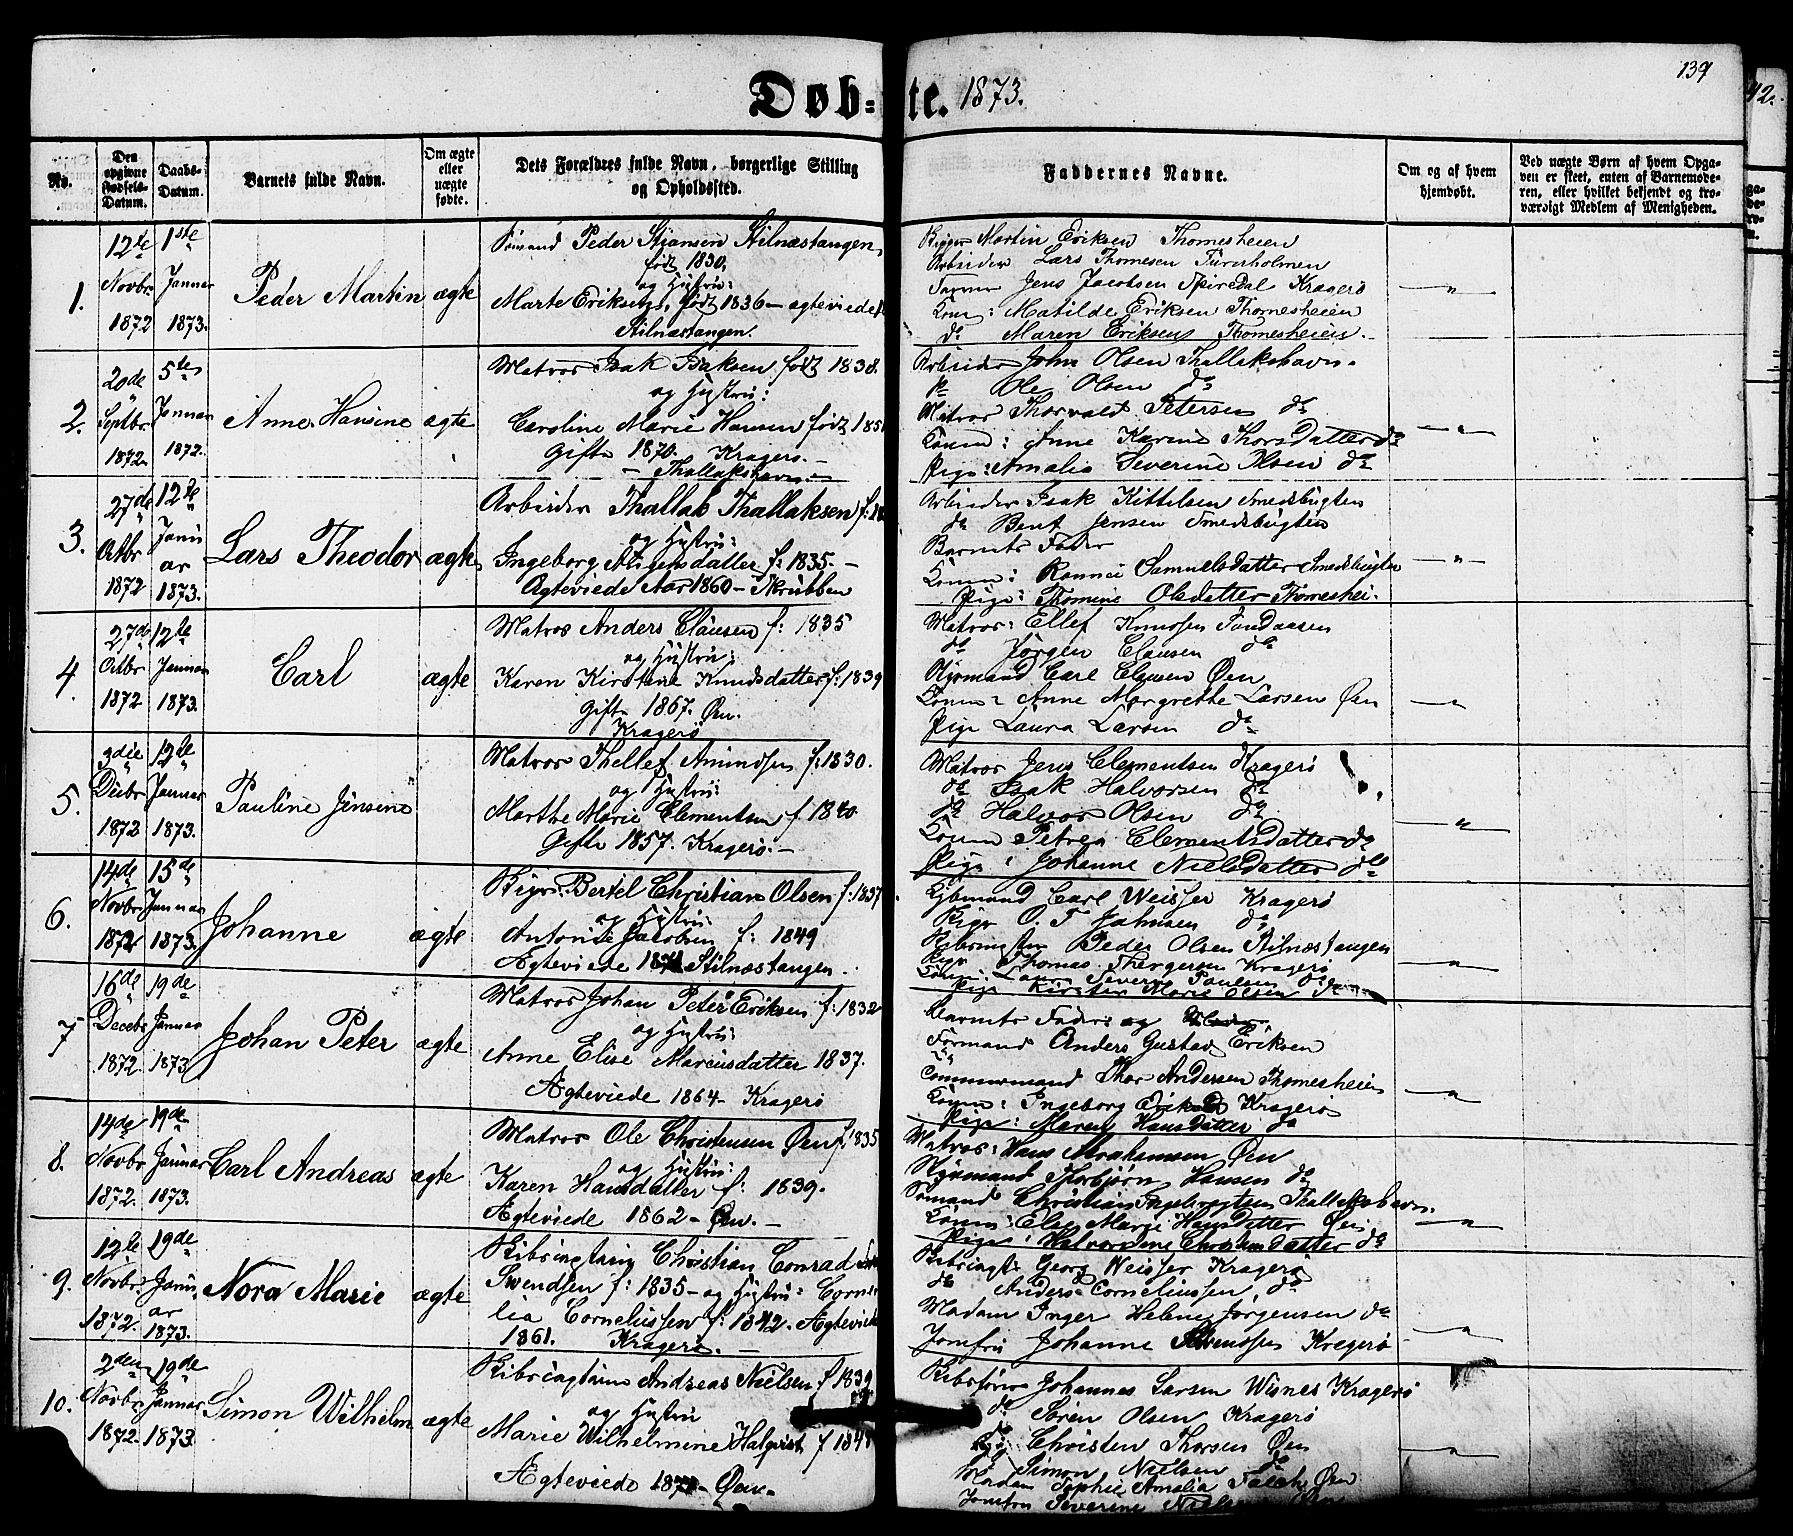 139
Døb-te. 1873.
No.
Den opgivne Fødsels-Datum.
Daabs-Datum.
Barnets fulde Navn.
Om ægte eller uægte fødte.
Dets Forældres fulde Navn, borgerlige Stilling og Opholdssted.
Faddernes Navne.
Om og af hvem hjemdøbt.
Ved uægte Børn af hvem Opgaven er skeet, enten af Barnemoderen, eller hvilket bekjendt og troværdigt Medlem af Menigheden.
1.
12te Novbr 1872
1ste Januar 1873.
Peder Martin
ægte
Sømand Peder Stiansen Stilnæstangen,
født 1830,
og Hustru:
Marte født 1836 - ægteviede
Stilnæstangen.
Martin Eriksen Thomesheien
Arbeider Lars Thomesen Furuholmen
Jens Jacobsen Kragerø
Kone: Matilde Eriksen Thomesheien
do Maren Eriksen Thomesheien.
2.
20de Septbr 1872
5te Januar 1872.
Anne Hansine
ægte
Matros Isak Isaksen født 1838.
og Hustru:
Caroline Marie Hansen født
Gifte 1870. Kragerø.
Thallakshavn
Arbeider John Olsen Thallakshavn.
Ole Olsen do
Matros Thorvald Petersen do
Konen: Anne Karine Thorsdatter do
Pige: Amalie Severine Olsen do
3.
27de Octbr 1872
12te Januar 1873.
Lars Theodor
ægte
Arbeider Thallak Thallaksen
og Hustru:
Ingeborg f: 1835.
Ægteviede Aar 1860 - Skrubben
Arbeider Isak Kittilsen Smedsbugten
do Bent Jensen Smedsbugten
Barnets Fader
Konen: Samuelsdatter Smedsbugten
Pige: Thomine Olsdatter Thomeshei.
4.
27de Octbr 1872
12te Januar 1873.
Carl
ægte
Matros Anders Clausen f: 1835
og Hustru:
Karen Kirstine Knudsdatter f: 1839
gifte 1867. Øen.
Kragerø
Matros: Ellef Knudsen
do Jørgen Clausen do
Styrmand Carl Clausen Øen
Konen: Anne Margrethe Larsen Øen
Pige Laura Larsen do
5.
3die Decbr 1872
12te Januar 1873.
Pauline Jensine
Matros Thellef Amundsen f: 1830.
og Hustru:
Marthe Marie Clementsen f 1840
Gifte 1857. Kragerø.
Matros Jens Clementsen Kragerø
do Isak Halvorsen do
do Halvor Olsen do
Konen Petrea Clementsdatter do
Pige: Johanne Nielsdatter do
6.
14de Novbr 1872
15de Januar 1873.
Johanne
ægte
Bertel Christian Olsen f: 1837
og Hustru:
Antonie Jacobsen f: 1849
Ægteviede Stilnæstangen
Carl Weisser Kragerø
O. T. do
Peder Olsen Stilnæstangen
Thomas Kragerø
Severine Paulsen do
Pige Kirsten Marie Olsen do
7
16de Decebr 1872
19de Januar 1873
Johan Peter
ægte
Matros Johan Peter Eriksen f: 1832
og Hustru:
Anne Elise Marcusdatter 1837.
Ægteviede 1864 - Kragerø
Barnets Fader og
Formand Anders Gustav Eriksen
Thor Andersen Thomesheien
Konen: Ingeborg Kragerø
Pige: Maren Hansdatter do
8.
14de Novbr 1872.
19de Januar 1873.
Carl Andreas
ægte
Matros Ole Christensen Øen f: 1835
og Hustru:
Karen Hansdatter f: 1839.
Ægteviede 1862 - Øen.
Matros: Hans Abrahamsen Øen
Styrmand Thorbjørn Hansen do
Sømand Christian Thallakshavn.
Konen: Else Marie Hansdatter Øen
Pige: do
9.
12te Novbr 1872.
19de Januar 1873.
Nora Marie
ægte
Christian Conrad
Svendsen f: 1835 - og Hustru: Corne-
lia Corneliussen f: 1842. Ægteviede
1861. Kragerø.
Georg Weisser Kragerø
do Anders Corneliussen, do
Madam Inger Helene Jørgensen do
Jomfru Johanne Svendsen Kragerø
10.
2den Novbr 1872.
19de Januar 1873.
Simon Wilhelm
ægte
Andreas Nielsen f 1839
og Hustru
Marie Wilhelmine Halqvist
Ægteviede Øen.
Johannes Larsen Wisnes Kragerø
do Søren Olsen Kragerø
Christen Thorsen Øen
Simon Nielsen do
Madam Sophie Amalia Falck Øen
Jomfru Severine